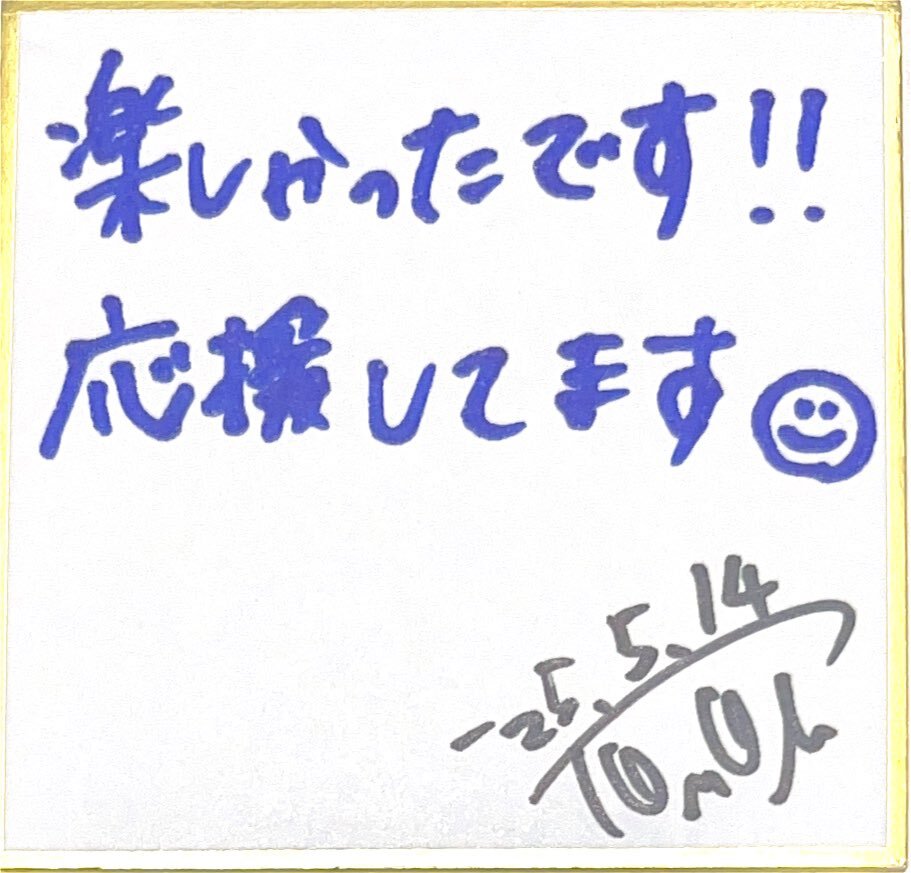 楽しかったです!!
応援してます
-25.5.14